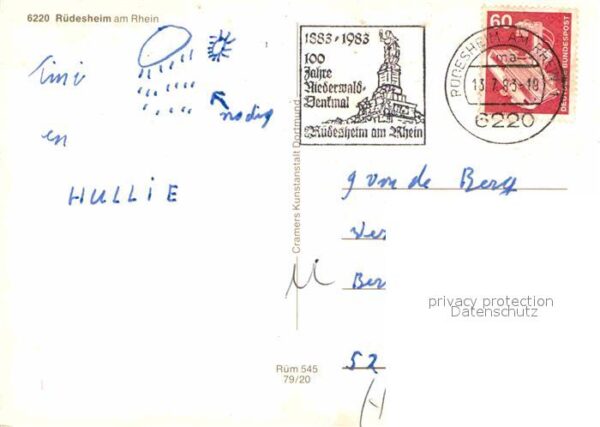 6220 Rüdesheim am Rhein
Tini
en
HULLIE
nodig
1883-1983
100
Jahre
Niederwald-
Denkmal
Rüdesheim am Rhein
RÜDESHEIM AM RHEIN
ma
13.7.83-10
6220
60
DEUTSCHE BUNDESPOST
Cramers Kunstanstalt Dortmund
g van de Berg
Ver
Ber
52
privacy protection
Datenschutz
Rüm 545
79/20